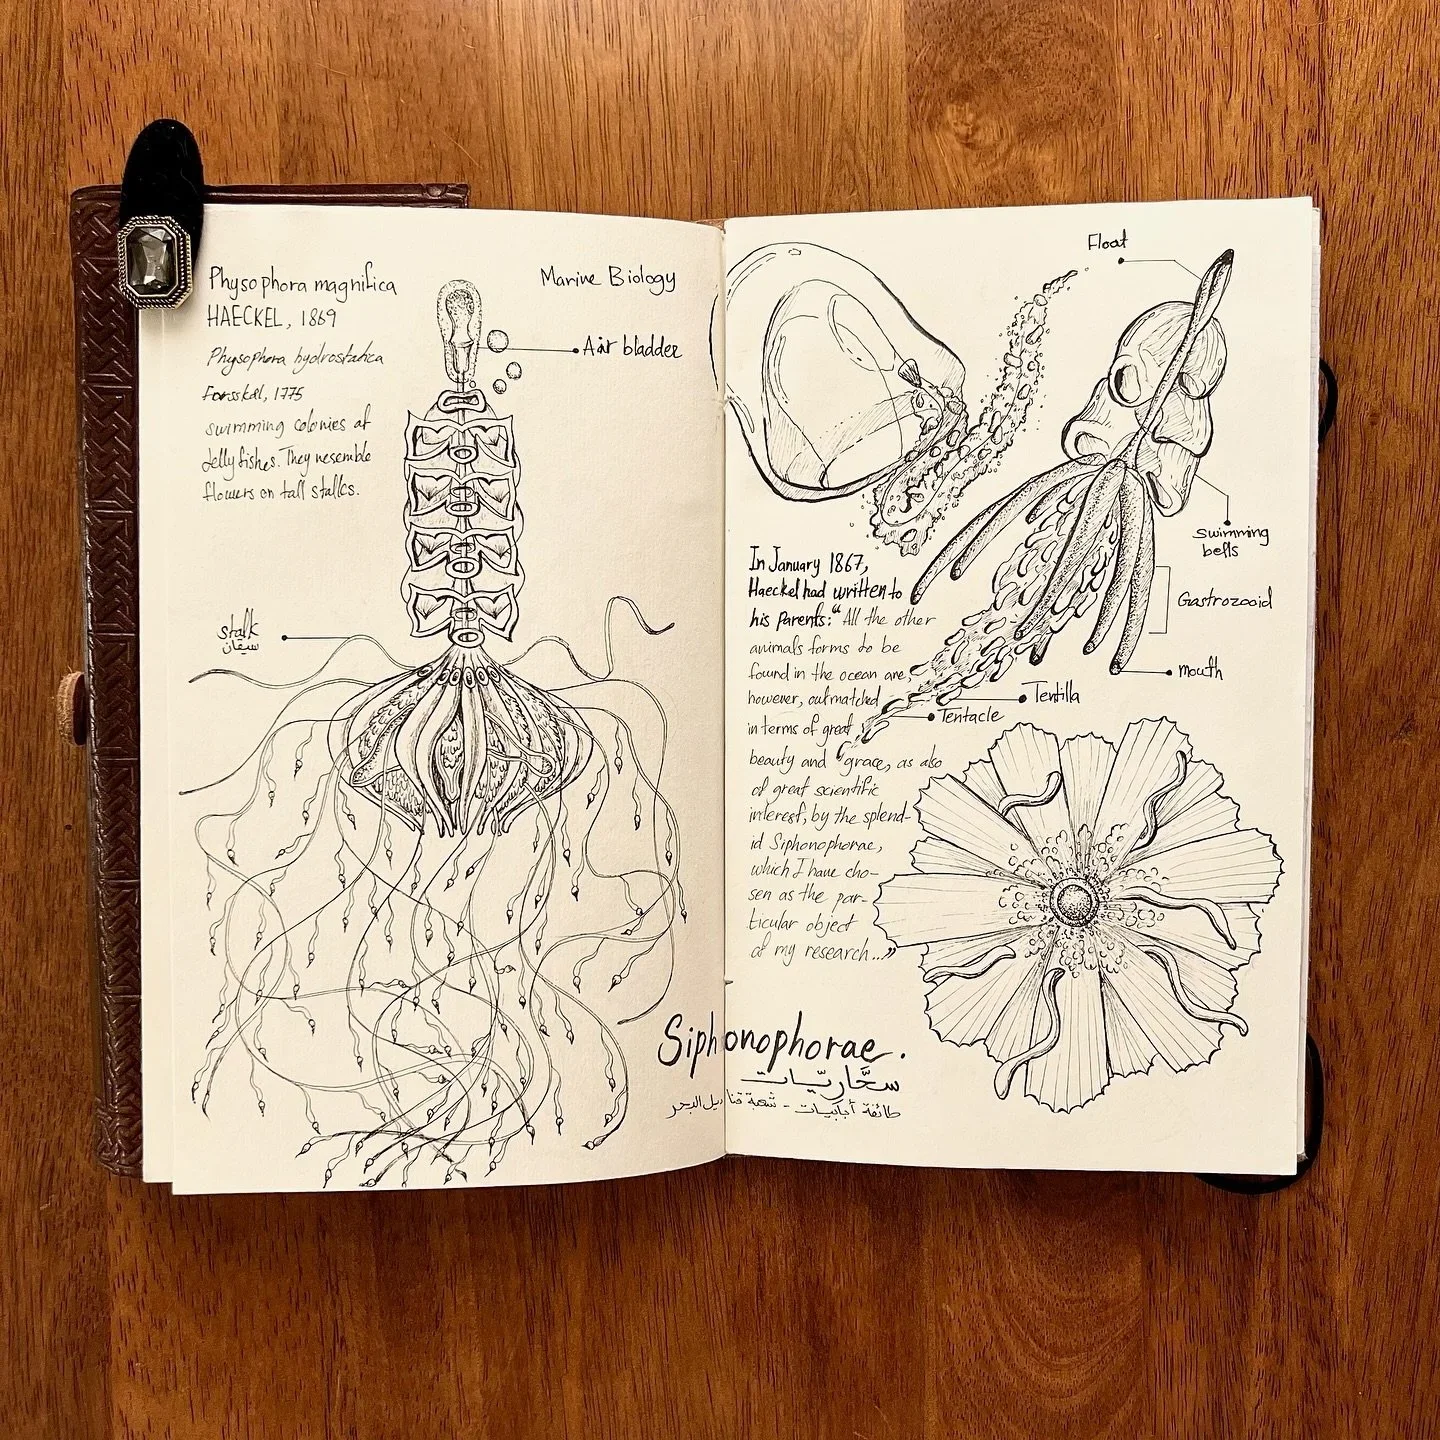 Physophora magnifica
HAECKEL, 1869
Physophora hydrostatica
Forsskal, 1775
swimming colonies of
Jelly fishes. They resemble
flowers on tall stalks.
Marine Biology
Air bladder
stalk
سيقان
Float
swimming
bells
Gastrozooid
mouth
Tentilla
Tentacle
In January 1867,
Haeckel had written to
his parents: “All the other
animals forms to be
found in the ocean are,
however, outmatched
in terms of great
beauty and grace, as also
of great scientific
interest, by the splend-
id Siphonophorae,
which I have cho-
sen as the par-
ticular object
of my research...”
Siphonophorae.
سحّاريّات
طائفة أبابيات - شعبة قناديل البحر